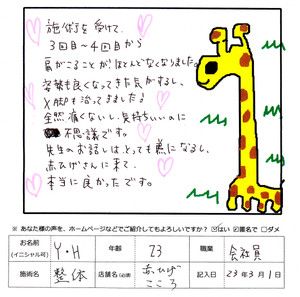 施術を受けて、
3回目～4回目から
肩がこることがほとんどなくなりました。
姿勢も良くなってきた気がするし、
X脚も治ってきましたよ
全然痛くないし、気持ちいいのに
不思議です。
先生のお話しは、とっても為になるし、
赤ひげさんに来て、
本当に良かったです。
※あなた様の声を、ホームページなどでご紹介してもよろしいですか？ ☑はい ☑匿名で □ダメ
お名前 (イニシャル可) Y・H 年齢 23 職業 会社員
施術名 整体 店舗名(必須) 赤ひげ こころ 記入日 23年3月1日